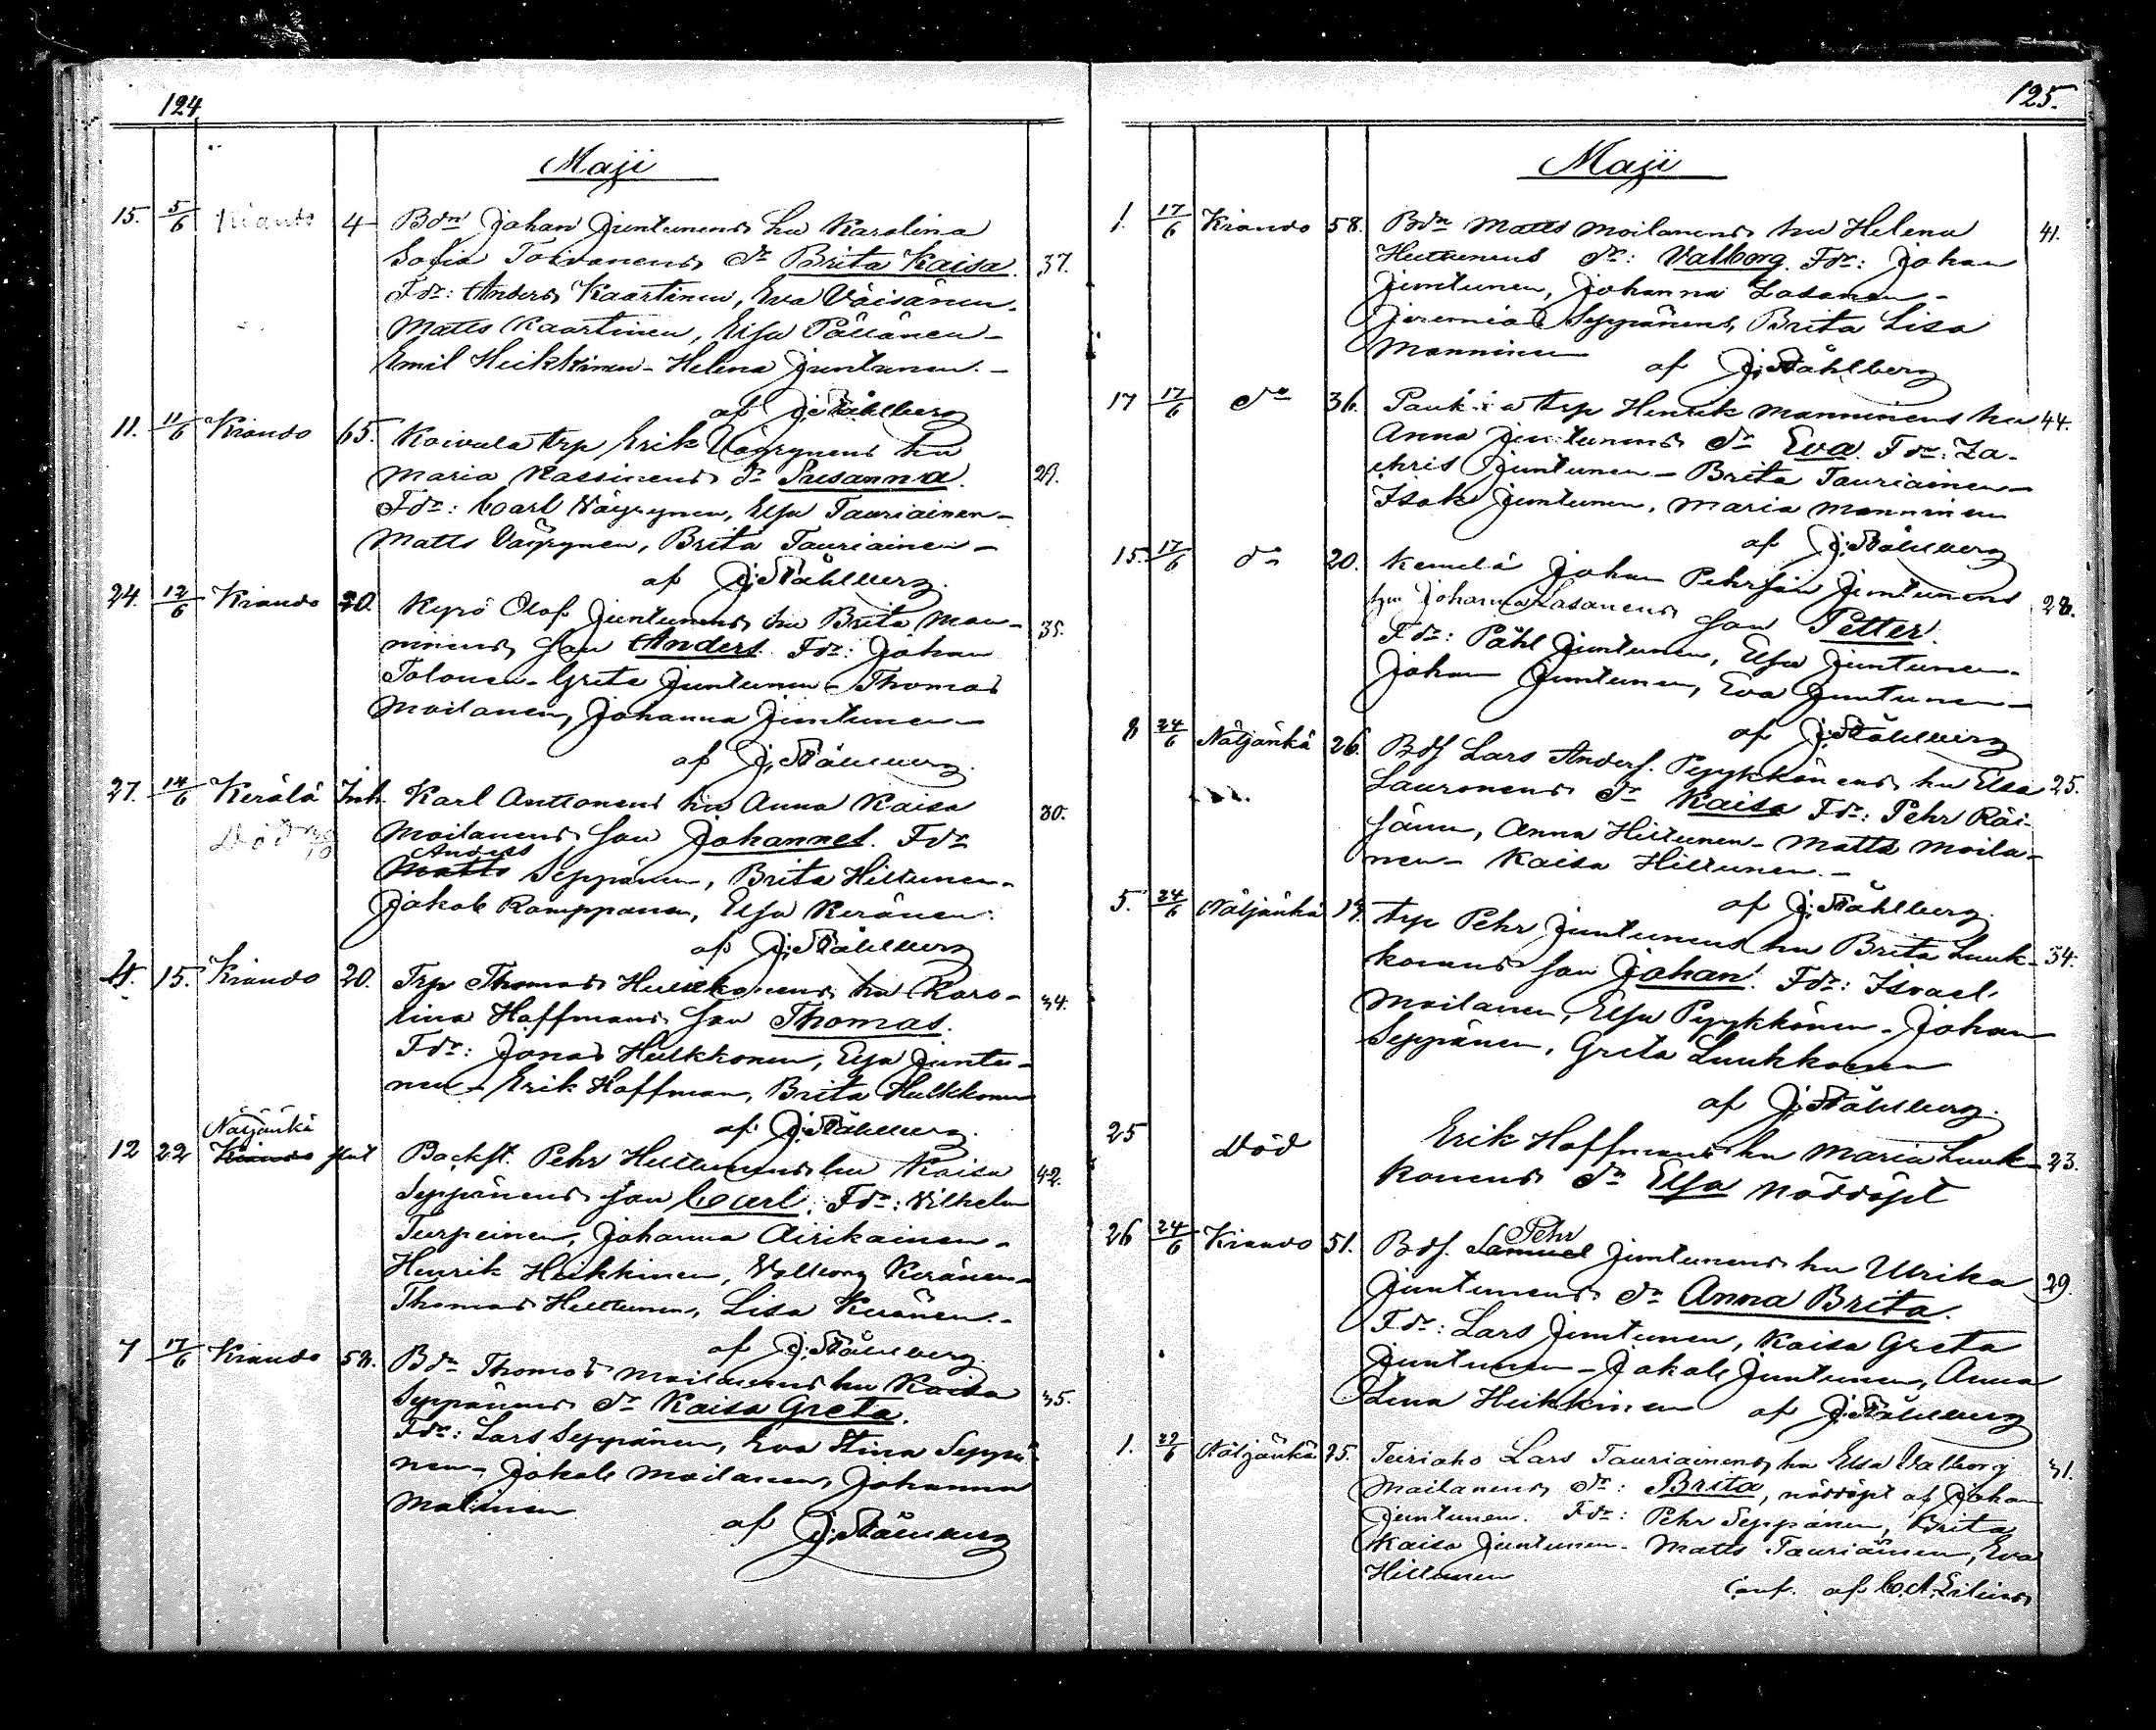 124
Maji
15. 5/6 Kiando 4 Bdn Johan Juntunens hu Karolina
Sofia Toivanens dr Brita Kaisa. 37.
Fdr: Anders Kaartinen, Eva Väisänen.
Matts Kaartinen, Elsa Pällänen -
Emil Heikkinen - Helena Juntunen. -
af J. Ståhlberg
11. 11/6 Kiando 65. Koivula trp Erik Väyrynens hu
Maria Kassinens dr Susanna. 29.
Fdr: Carl Väyrynen, Elsa Tauriainen -
Matts Väyrynen, Brita Tauriainen -
af J. Ståhlberg.
24. 12/6 Kiando 20. Kyrö Olof Juntunens hu Brita Man-
ninens son Anders. Fdr: Johan 35.
Tolonen - Greta Juntunen - Thomas
Moilanen, Johanna Juntunen -
af J. Ståhlberg.
27. 14/6 Kerälä Inh. Karl Anttonens hu Anna Kaisa 30.
Död Moilanens son Johannes. Fdr
Anders
Matts Seppänen, Brita Hiltunen -
Jakob Ramppanen, Elsa Keränen.
af J. Ståhlberg
4. 15. Kiando 20. Trp Thomas Hulkkonens hu Karo-
lina Hoffmans son Thomas. 34.
Fdr: Jonas Hulkkonen, Elsa Juntu-
nen - Erik Hoffman, Brita Hulkkonen
af J. Ståhlberg.
Näljänkä
12 22 Kiando Backst. Pehr Hiltunens hu Kaisa 42.
Seppänens son Carl. Fdr: Vilhelm
Turpeinen, Johanna Airikainen -
Henrik Heikkinen, Valborg Keränen -
Thomas Hiltunen, Lisa Keränen. -
af J. Ståhlberg.
7 17/6 Kiando 58. Bdn Thomas Moilanens hu Kaisa
Seppänens dr Kaisa Greta. 35.
Fdr: Lars Seppänen, Eva Stina Seppä-
nen - Jakob Moilanen, Johanna
Malinen
af J. Ståhlberg
125.
Maji
1. 17/6 Kiando 58. Bdn Matts Moilanens hu Helena 41.
Huttunens dr: Valborg. Fdr: Johan
Juntunen, Johanna Lasanen -
Jeremias Seppänens, Brita Lisa
Manninen af J. Ståhlberg
17 17/6 do 36. trp Henrik Manninens hu 44.
Anna Juntunens dr Eva. Fdr: Za-
chris Juntunen - Brita Tauriainen -
Isak Juntunen, Maria Manninen
af J. Ståhlberg
15. 17/6 do 20. Kemilä Johan Pehrsson Juntunens
hu Johanna Lasanens son Petter. 28.
Fdr: Påhl Juntunen, Elsa Juntunen -
Johan Juntunen, Eva Juntunen -
af J. Ståhlberg
8 24/6 Näljänkä 26. Bdf Lars Anders. Pyykkönens hu Elsa 25.
Lauronens dr Kaisa Fdr: Pehr Räi-
sänen, Anna Hiltunen - Matts Moila-
nen - Kaisa Hiltunen. -
af J. Ståhlberg.
5. 24/6 Näljänkä 19. trp Pehr Juntunens hu Brita Luuk- 34.
konens son Johan. Fdr: Israel
Moilanen, Elsa Pyykkönen - Johan
Seppänen, Greta Luukkonen
af J. Ståhlberg.
25 Död Erik Hoffmans hu Maria Luuk- 23.
konens dr Elsa nöddöpt
26 24/6 Kiando 51. Bdf. Samuel Pehr Juntunens hu Ulrika 29.
Juntunens dr Anna Brita.
Fdr: Lars Juntunen, Kaisa Greta
Juntunen - Jakob Juntunen, Anna
Lena Heikkinen af J. Ståhlberg
1. 29/6 Näljänkä 25. Teiriaho Lars Tauriainens hu Elsa Valborg 31.
Moilanens dr: Brita, nöddöpt af Johan
Juntunen. Fdr: Pehr Seppänen, Brita
Kaisa Juntunen - Matts Tauriainen, Eva
Hiltunen conf. af C. A.